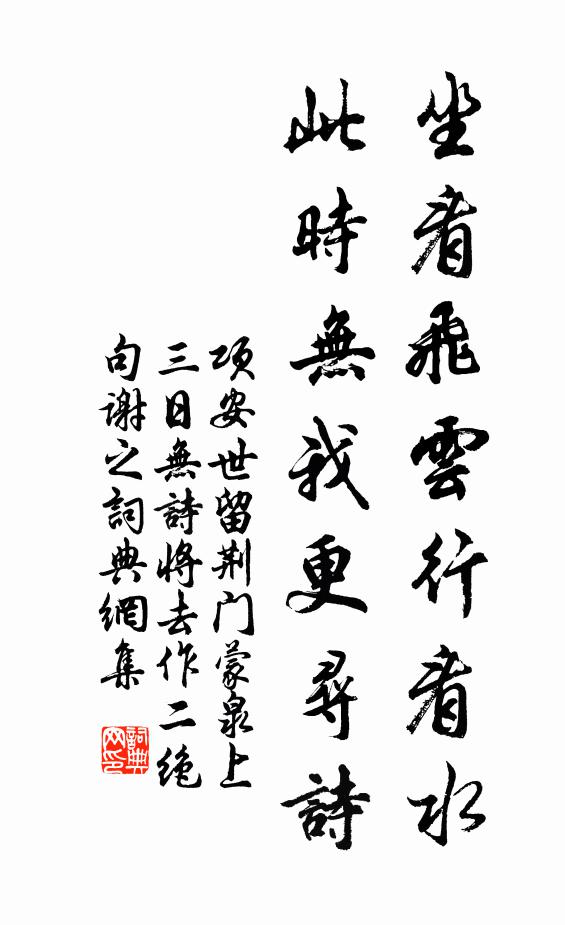 坐看飛雲行看水
此時無我更尋詩
项安世留荆门蒙泉上
三日無詩将去作二绝
句谢之詞典網集
詞典网印